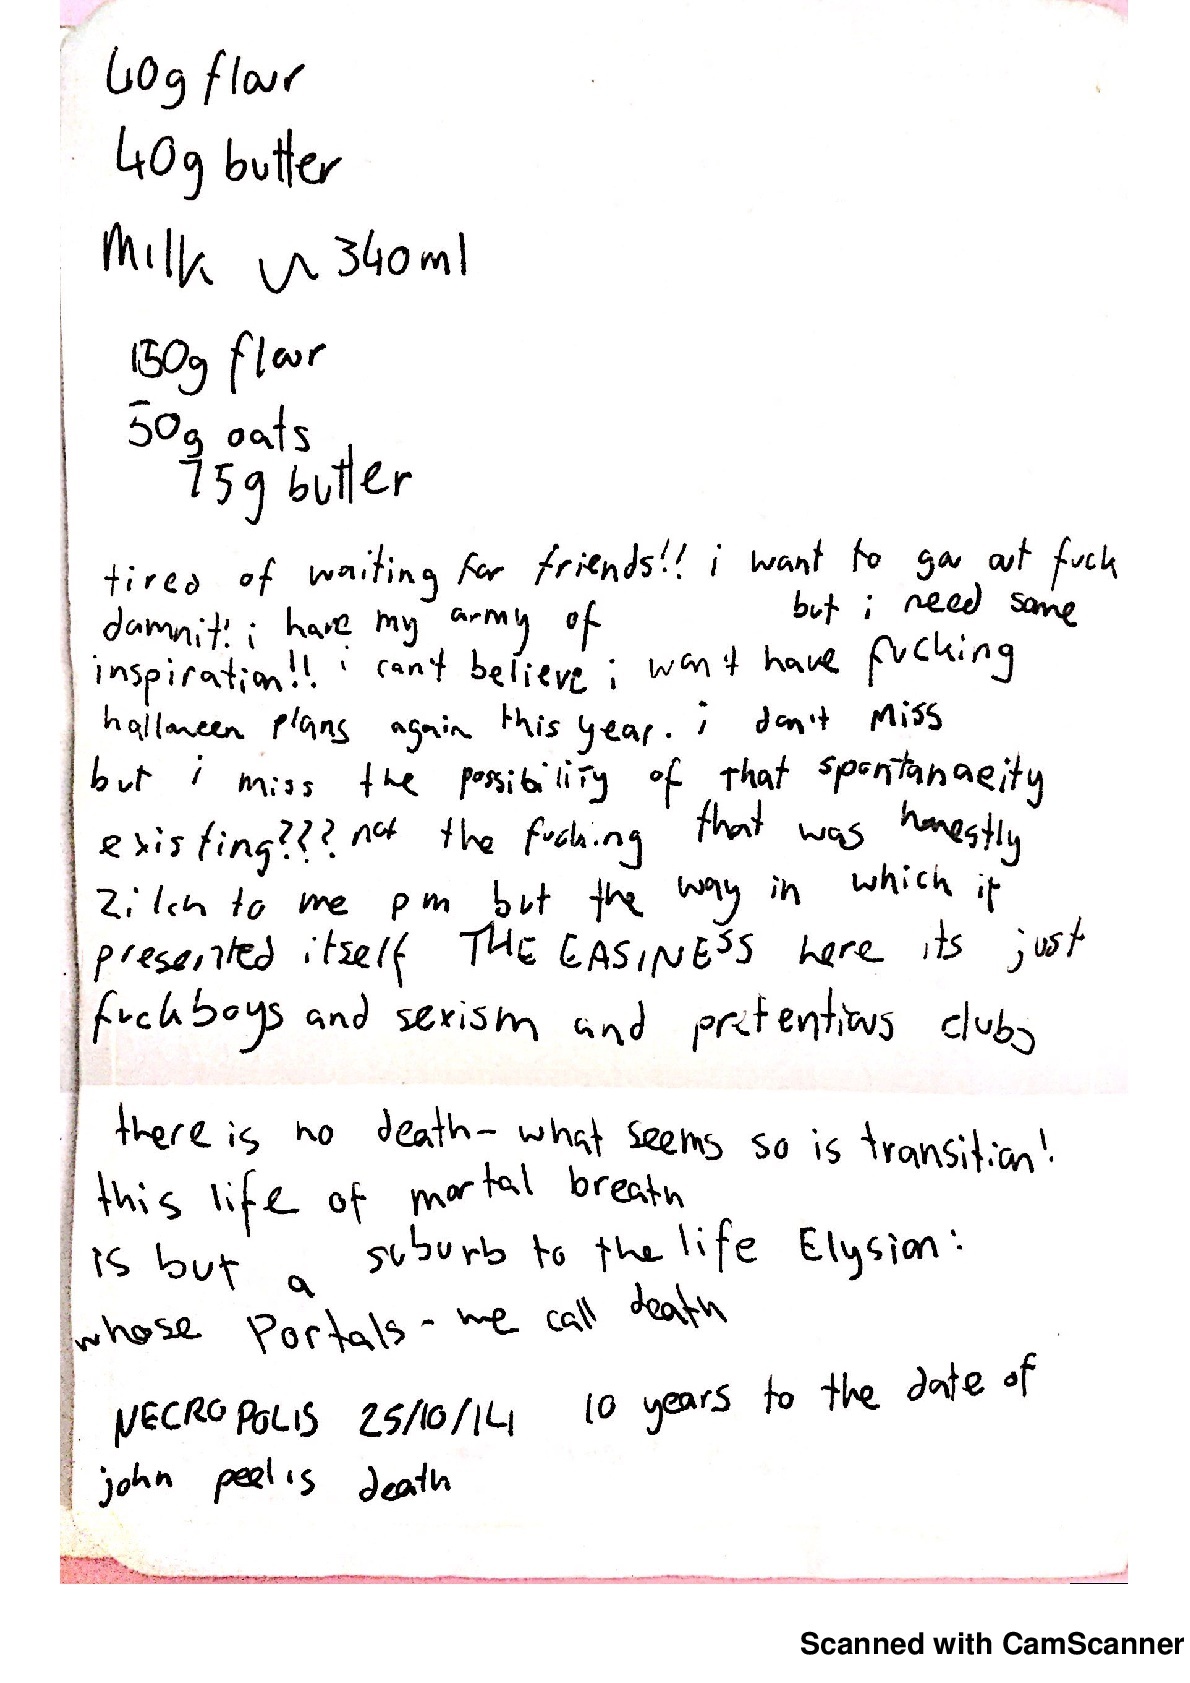 40g flour
40g butter
Milk ~ 340ml
150g flour
50g oats
75g butter
tired of waiting for friends!! i want to go out fuck
damnit! i have my army of but i need some
inspiration!! i can't believe i won't have fucking
halloween plans again this year. i don't miss
but i miss the possibility of that spontanaeity
existing??? not the fucking that was honestly
zilch to me pm but the way in which it
presented itself THE EASINESS here its just
fuckboys and sexism and pretentious clubs
there is no death - what seems so is transition!
this life of mortal breath
is but a suburb to the life Elysian:
whose Portals - we call death
NECROPOLIS 25/10/14 10 years to the date of
john peel's death
Scanned with CamScanner